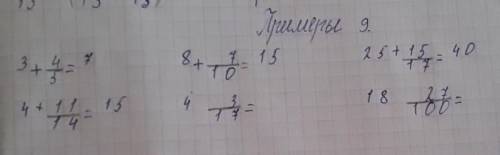 Примеры 9.
3 + 4/5 = 7   8 + 7/10 = 15   25 + 15/17 = 40
4 + 11/14 = 15   4 3/17 =   18 27/100 =